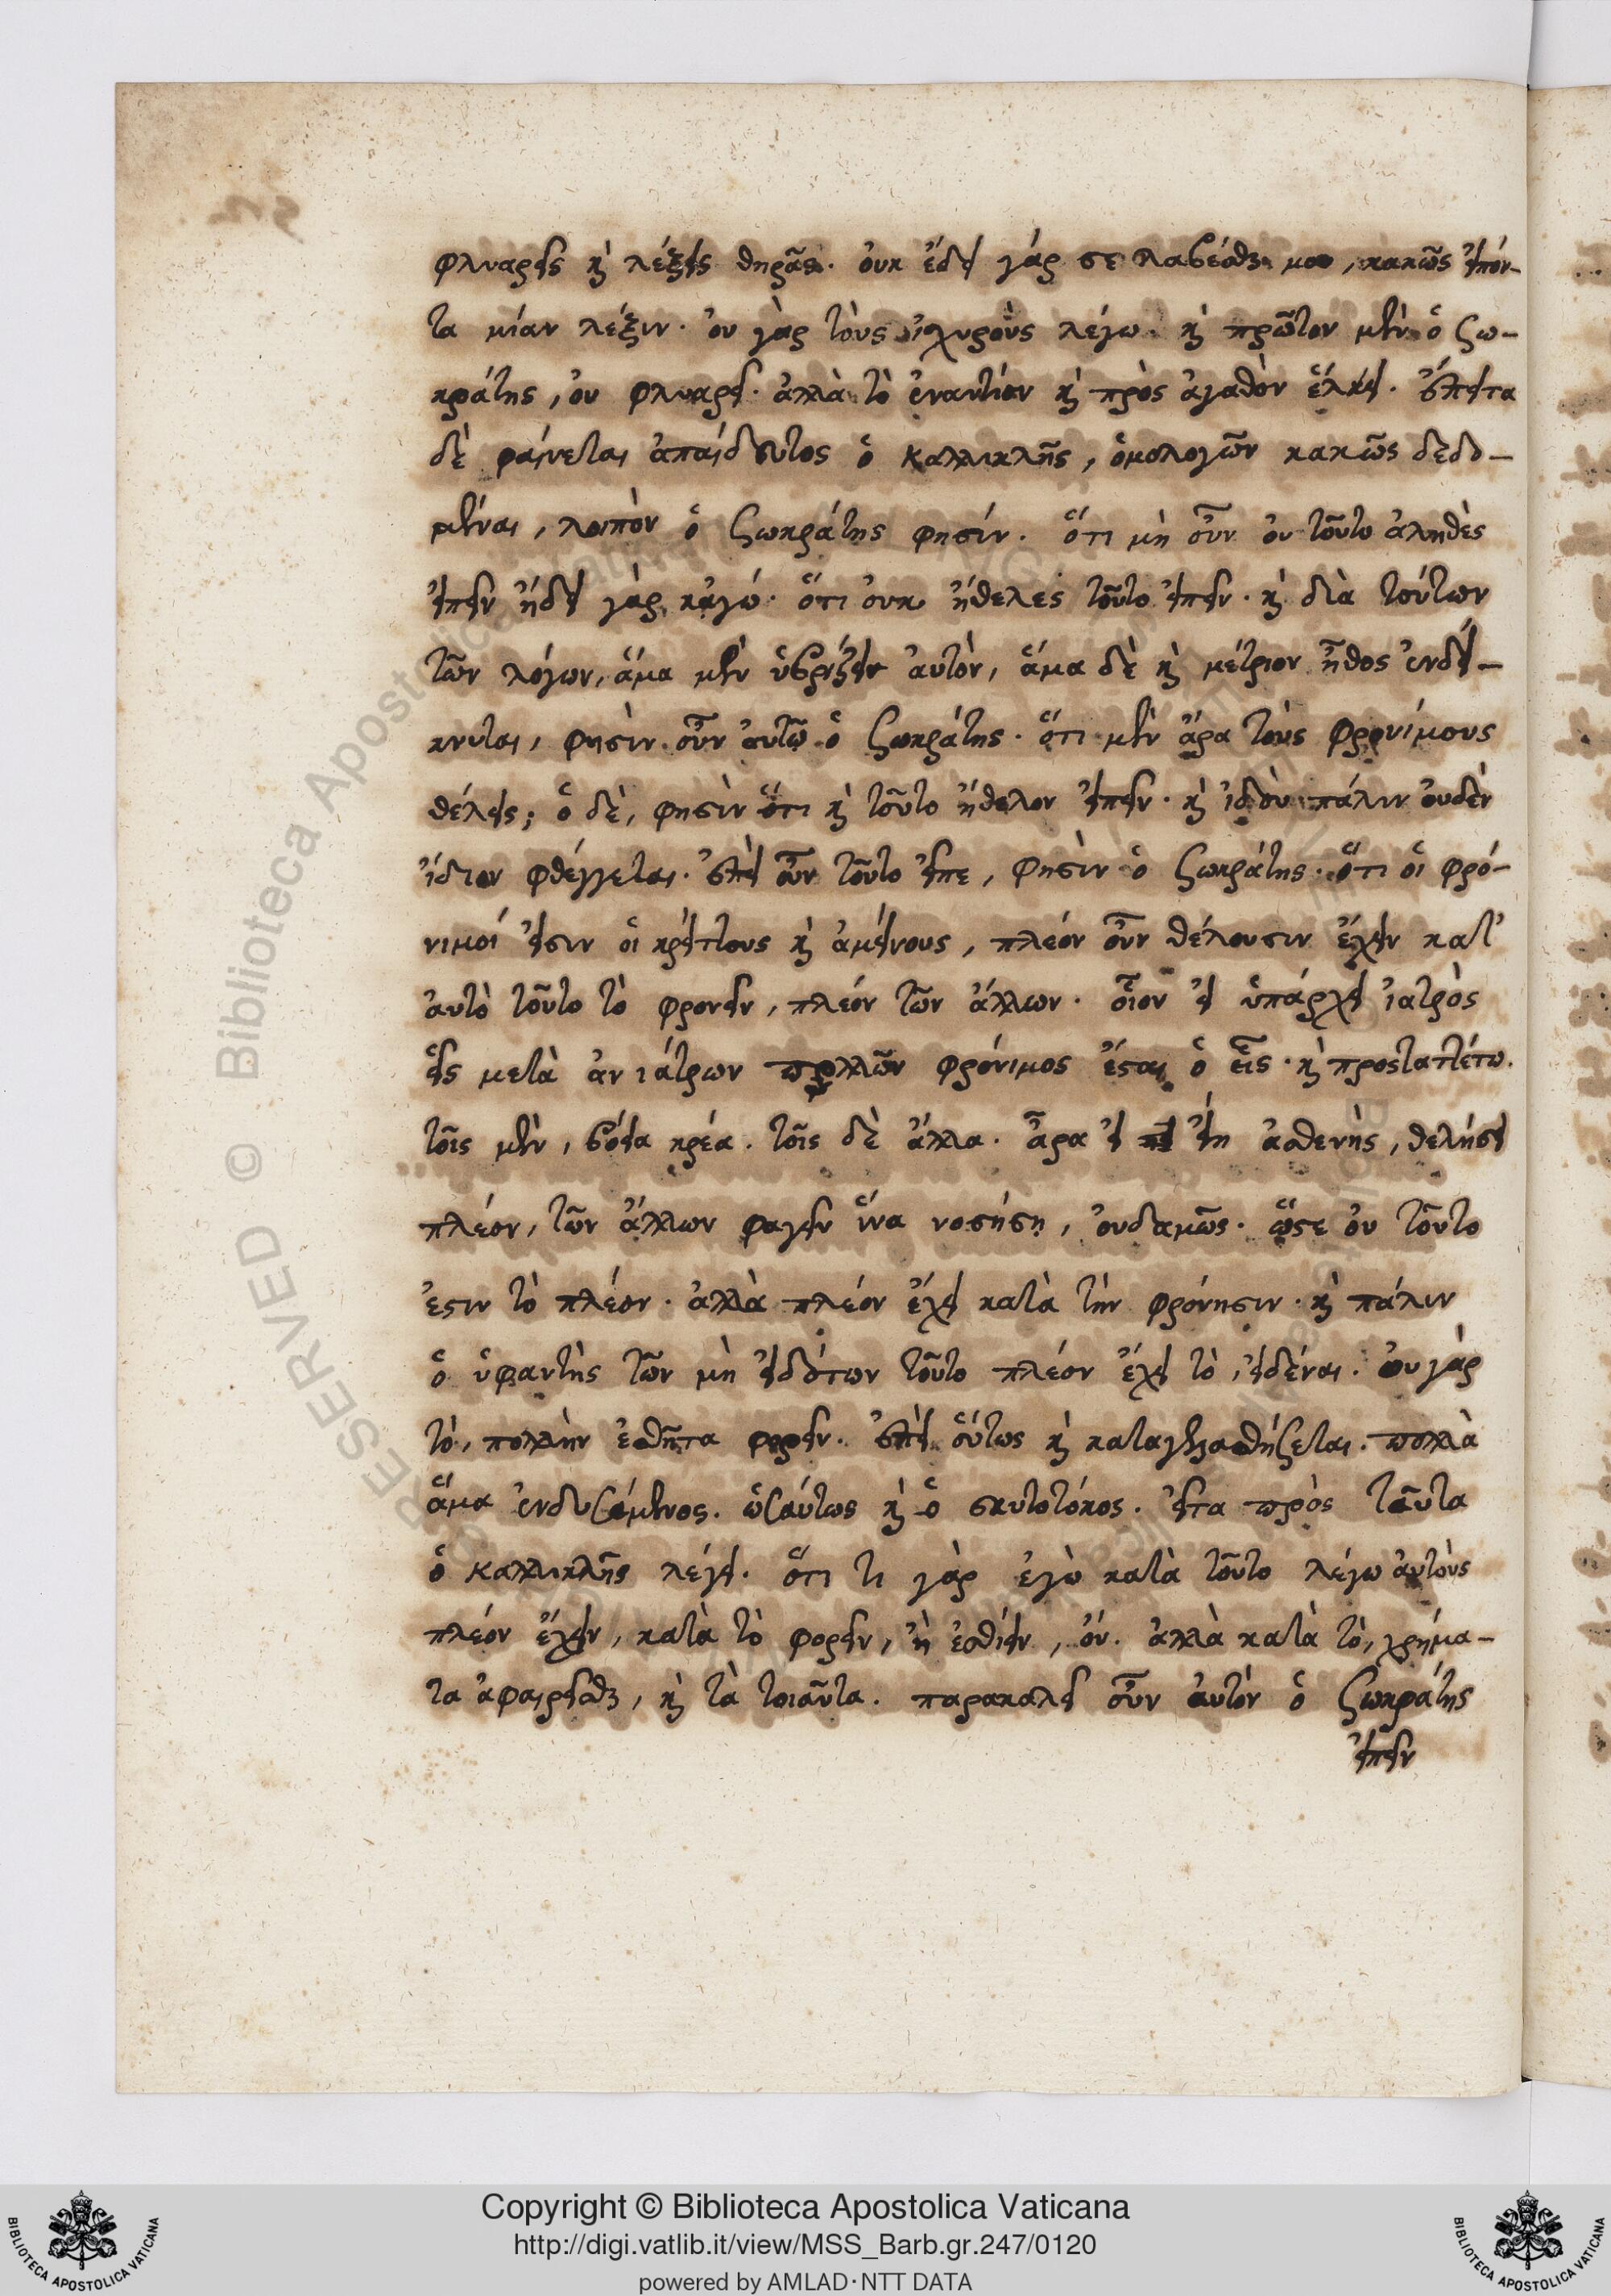 φλυαρεῖς κὴ λέξεις θηρᾶσαι. ὀυκ ἔδει γάρ σε λαβέσθαι μου, κακῶς ἐιπόν-
τα μίαν λέξιν. ὀυ γὰρ τοὺς ἰσχυροὺς λέγω. κὴ πρῶτον μὲν ὁ Σω-
κράτης, ὀυ φλυαρεῖ. ἀλλὰ τὸ ἐναντίον κὴ πρὸς ἀγαθὸν ἕλκει. ἔπειτα
δὲ φαίνεται ἀπαίδευτος ὁ Καλλικλῆς, ὁμολογῶν κακῶς δεδο-
μέναι, λοιπὸν ὁ Σωκράτης φησίν. ὅτι μὴ οὖν ὀυ τοῦτο ἀληθὲς
ἐιπεῖν ἤδει γὰρ κἀγώ. ὅτι ὀυκ ἤθελες τοῦτο ἐιπεῖν. κὴ διὰ τούτων
τῶν λόγων, ἅμα μὲν ὑβρίζειν ἀυτὸν, ἅμα δὲ κὴ μέτριον ἦθος ἐνδεί-
κνυται, φησὶν οὖν ἀυτῷ ὁ Σωκράτης. ὅτι μὲν ἄρα τοὺς φρονίμους
θέλεις; ὁ δὲ, φησὶν ὅτι κὴ τοῦτο ἤθελον ἐιπεῖν. κὴ ἰδοὺ πάλιν ὀυδὲν
ἴδιον φθέγγεται. ἐπεὶ οὖν τοῦτο εἶπε, φησὶν ὁ Σωκράτης. ὅτι ὁι φρό-
νιμοί ἐισιν ὁι κρείττους κὴ ἀμείνους, πλέον οὖν θέλουσιν ἔχειν κατ'
ἀυτὸ τοῦτο τὸ φρονεῖν, πλέον τῶν ἄλλων. οἷον ἐι ὑπάρχει ἰατρὸς
εἷς μετὰ ἀνιάτρων πολλῶν φρόνιμος ἔσται ὁ εἷς. κὴ προσταττέτω.
τοῖς μὲν, βόεια κρέα. τοῖς δὲ ἄλλα. ἆρα ἐι εἴη ἀσθενὴς, θελήσει
πλέον, τῶν ἄλλων φαγεῖν ἵνα νοσήσῃ, ὀυδαμῶς. ὥστε ὀυ τοῦτο
ἐστιν τὸ πλέον. ἀλλὰ πλέον ἔχει κατὰ τὴν φρόνησιν. κὴ πάλιν
ὁ ὑφαντὴς τῶν μὴ ἐιδότων τοῦτο πλέον ἔχει τὸ, ἐιδέναι. ὀυ γὰρ
τὸ, πολλὴν ἐσθῆτα φορεῖν. ἐπεὶ ὅυτως κὴ καταγελασθήσεται. πολλὰ
ἅμα ἐνδυσάμενος. ὡσάυτως κὴ ὁ σκυτοτόκος. εἶτα πρὸς ταῦτα
ὁ Καλλικλῆς λέγει. ὅτι τι γὰρ ἐγὼ κατὰ τοῦτο λέγω ἀυτοὺς
πλέον ἔχειν, κατὰ τὸ φορεῖν, ἢ ἐσθίειν, ὄυ. ἀλλὰ κατὰ τὸ, χρήμα-
τα ἀφαιρεῖσθαι, κὴ τὰ τοιαῦτα. παρακαλεῖ οὖν ἀυτὸν ὁ Σωκράτης
ἐιπεῖν
Copyright © Biblioteca Apostolica Vaticana
http://digi.vatlib.it/view/MSS_Barb.gr.247/0120
powered by AMLAD·NTT DATA